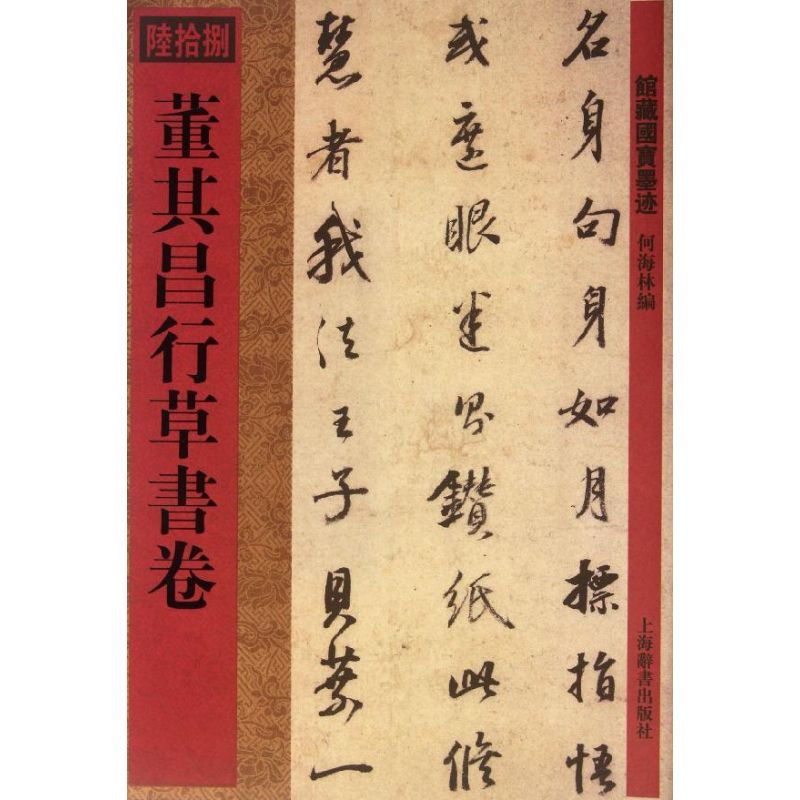 館藏國寶墨迹
何海林編
上海辭書出版社
名身句身如月摽指悟
或遮眼迷鑽紙此脩
慧者我法王子貝葉一
陸拾捌
董其昌行草書卷